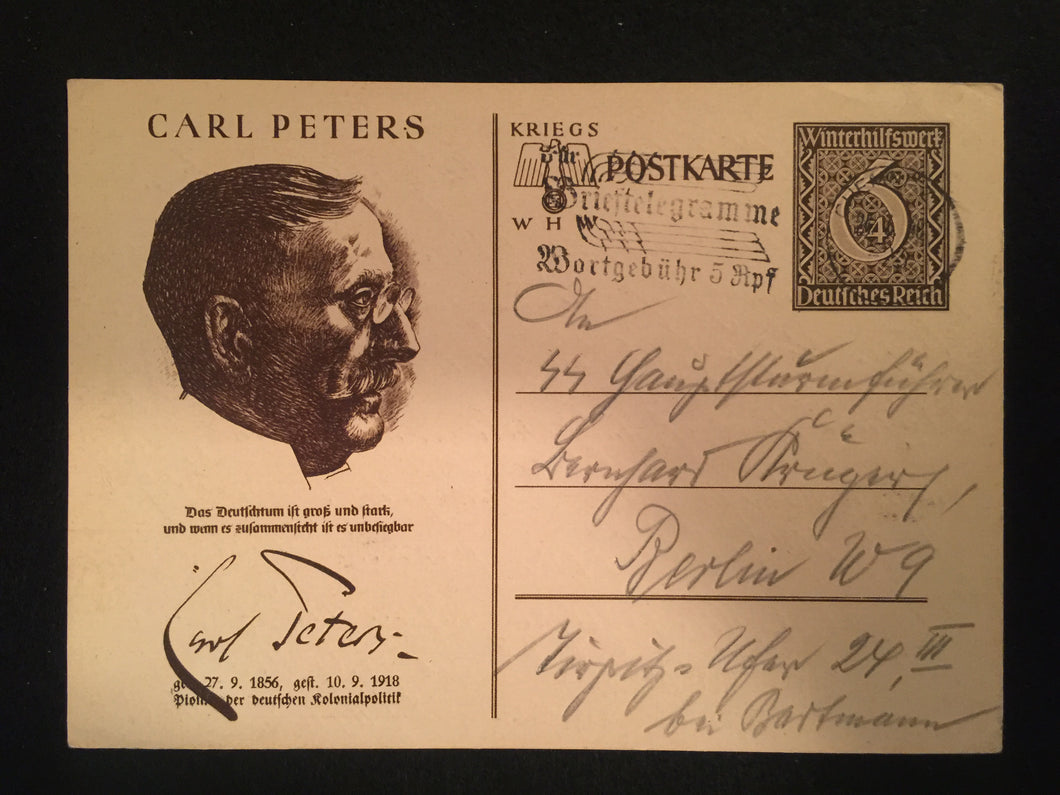 CARL PETERS
Das Deutschtum ist groß und stark,
und wenn es zusammensteht ist es unbesiegbar
Carl Peters
27. 9. 1856, gest. 10. 9. 1918
der deutschen Kolonialpolitik
KRIEGS
WHW
POSTKARTE
Brieftelegramme
Wortgebühr 5 Rpf
Winterhilfswerk
6
4
Deutsches Reich
An
SS Hauptsturmführer
Bernhard Krüger,
Berlin W 9
Tirpitz-Ufer 24, III
bei Bartmann